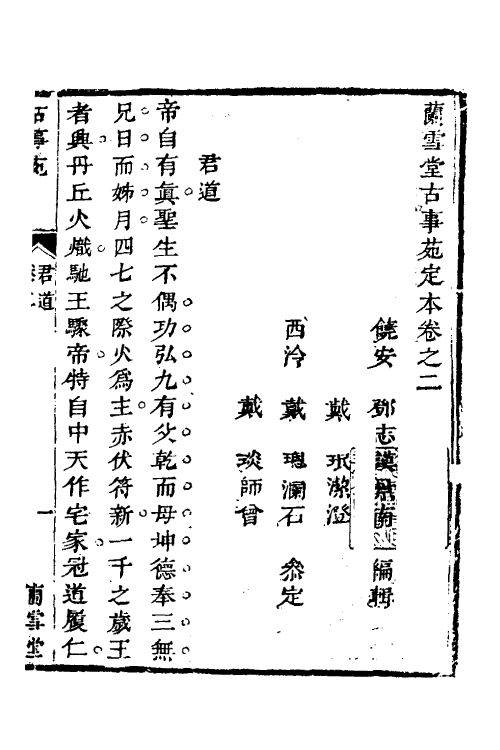 蘭雪堂古事苑定本卷之二
饒安 鄧志謨景南 編輯
戴 珉潔澄
西泠 戴 璁瀾石 叅定
戴 琰師曾
君道
帝自有真聖生不偶功弘九有父乾而母坤德奉三無
兄日而姊月四七之際火爲主赤伏符新一千之歲王
者興丹丘火熾馳王驟帝特自中天作宅家冠道履仁
古事苑 君道 一 蘭雪堂